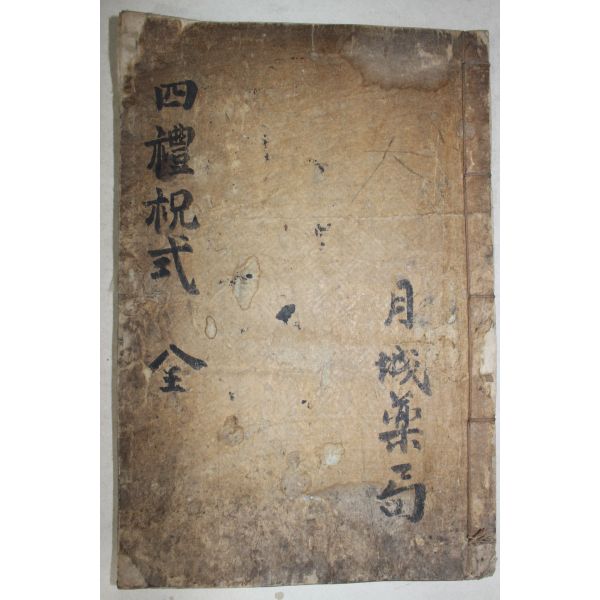 四禮祝式 全
月城藥局